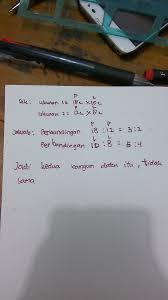 P L
Dik: Ukuran 1 = 18 × 10
P L
Ukuran 2 = 12 × 8
P P
Jawab: Perbandingan 18 : 12 = 3 : 2
L L
Perbandingan 10 : 8 = 5 : 4
Jadi kedua bangun datar itu, tidak
sama